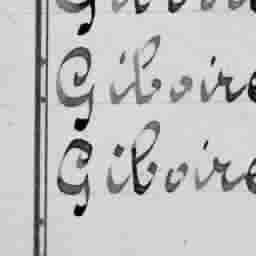 Giboire
Giboire